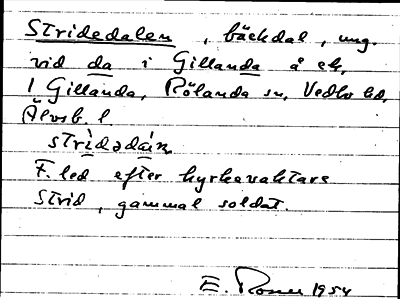 Stridedalen, bäckdal, ung.
vid da i Gillanda å ek,
1 Gillanda, Rölanda sn, Vedbo hd,
Älvsb. l
strìdədàin
F.led efter kyrkovaktare
Strid, gammal soldat.
E. 1954